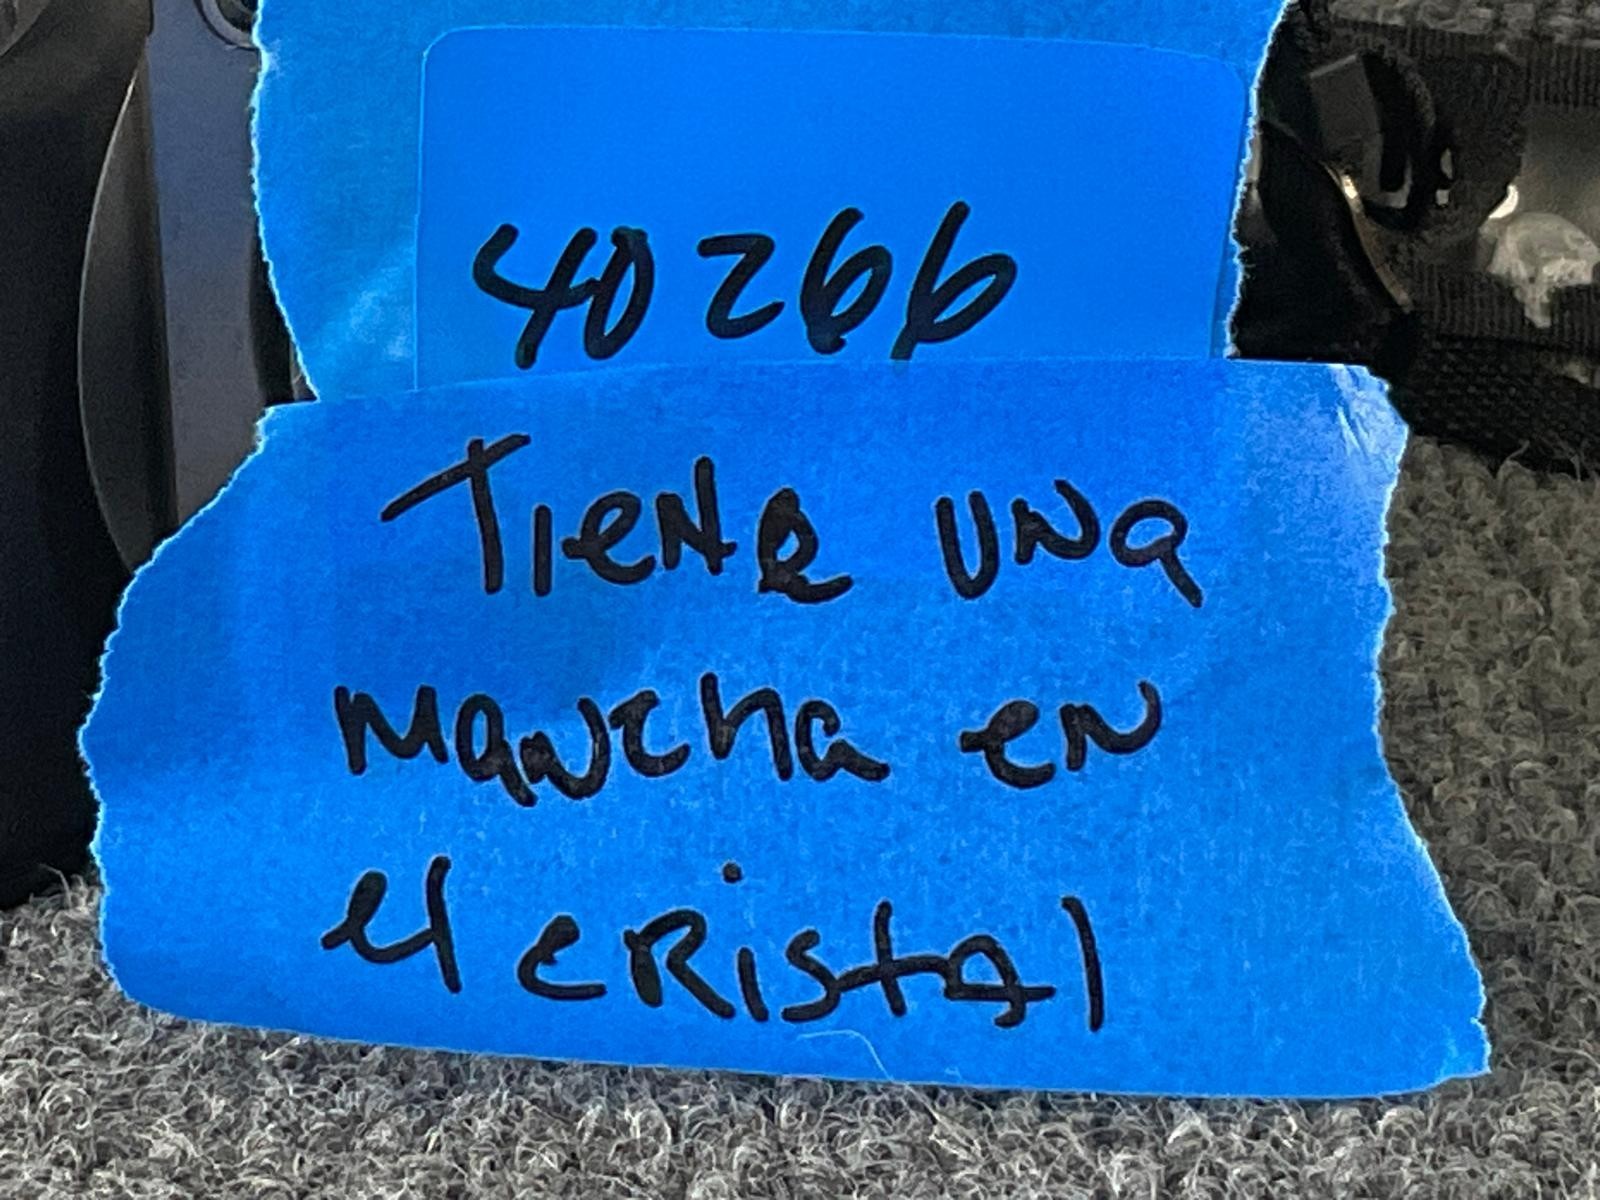 40266
Tiene una
mancha en
el cristal